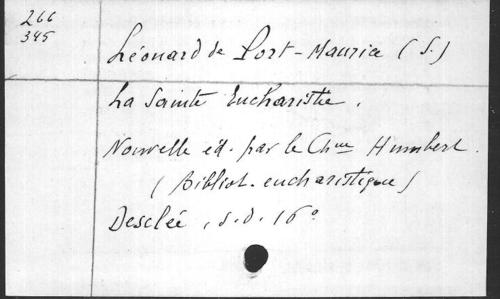 266
345
Léonard de Port-Maurice (S.)
La Sainte Eucharistie.
Nouvelle éd. par le Chne Humbert.
(Bibliot. eucharistique)
Desclée, s.d. 16°